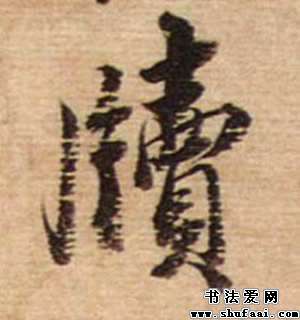 牘
书法爱网
www.shufaai.com